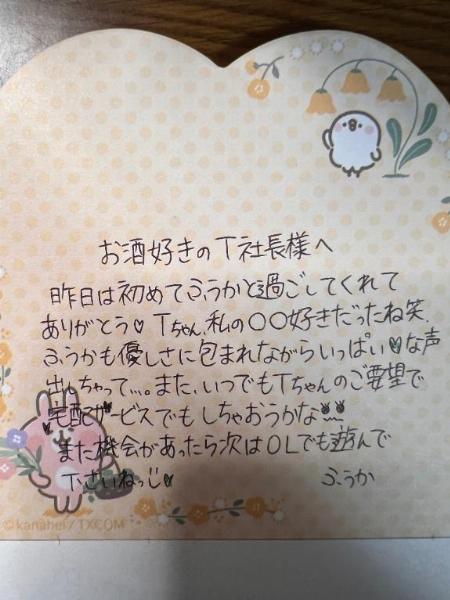 お酒好きのT社長様へ
昨日は初めてふうかと過ごしてくれて
ありがとう♡Tちゃん、私の〇〇好きだったね笑
ふうかも優しさに包まれながらいっぱい♡な声
出しちゃって…。また、いつでもTちゃんのご要望で
宅配サービスでもしちゃおうかな
また機会があったら次はOLでも遊んで
下さいねっ♡
ふうか
©kanahei / TXCOM